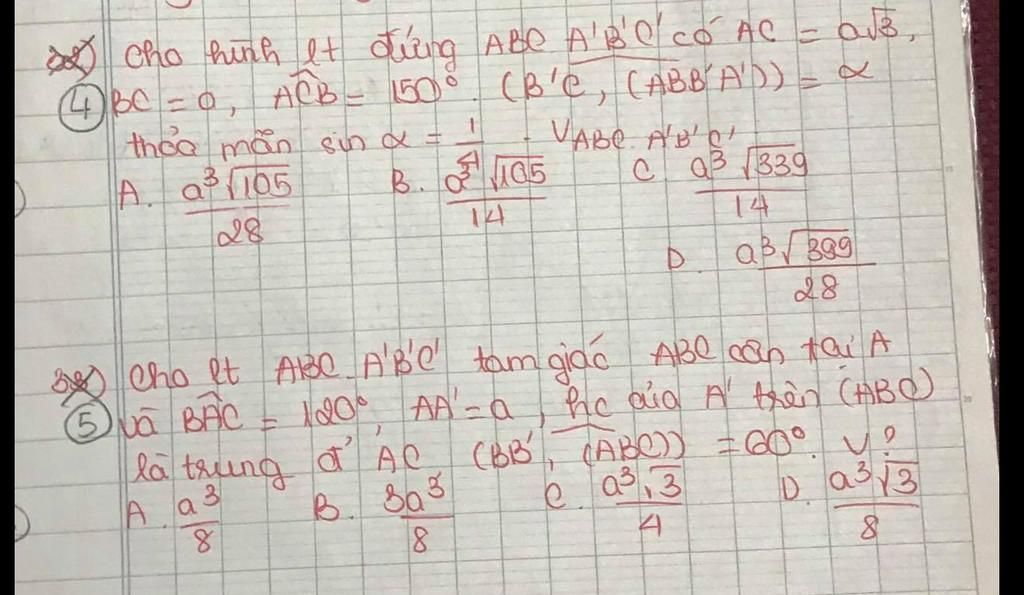 28) Cho hình lt đứng ABC A'B'C' có AC = a√3,
④ BC = a, ACB = 150°. (B'C, (ABB'A')) = α
thỏa mãn sin α = 1/4. VABC.A'B'C'
A. a³√105/28 B. a³√105/14 C a³√339/14
D. a³√399/28
38) Cho lt ABC.A'B'C' tam giác ABC cân tại A
⑤ và BAC = 120°, AA' = a, hc của A' trên (ABC)
là trung đ' AC, (BB', (ABC)) = 60°. V?
A. a³/8 B. 3a³/8 C. a³√3/4 D. a³√3/8